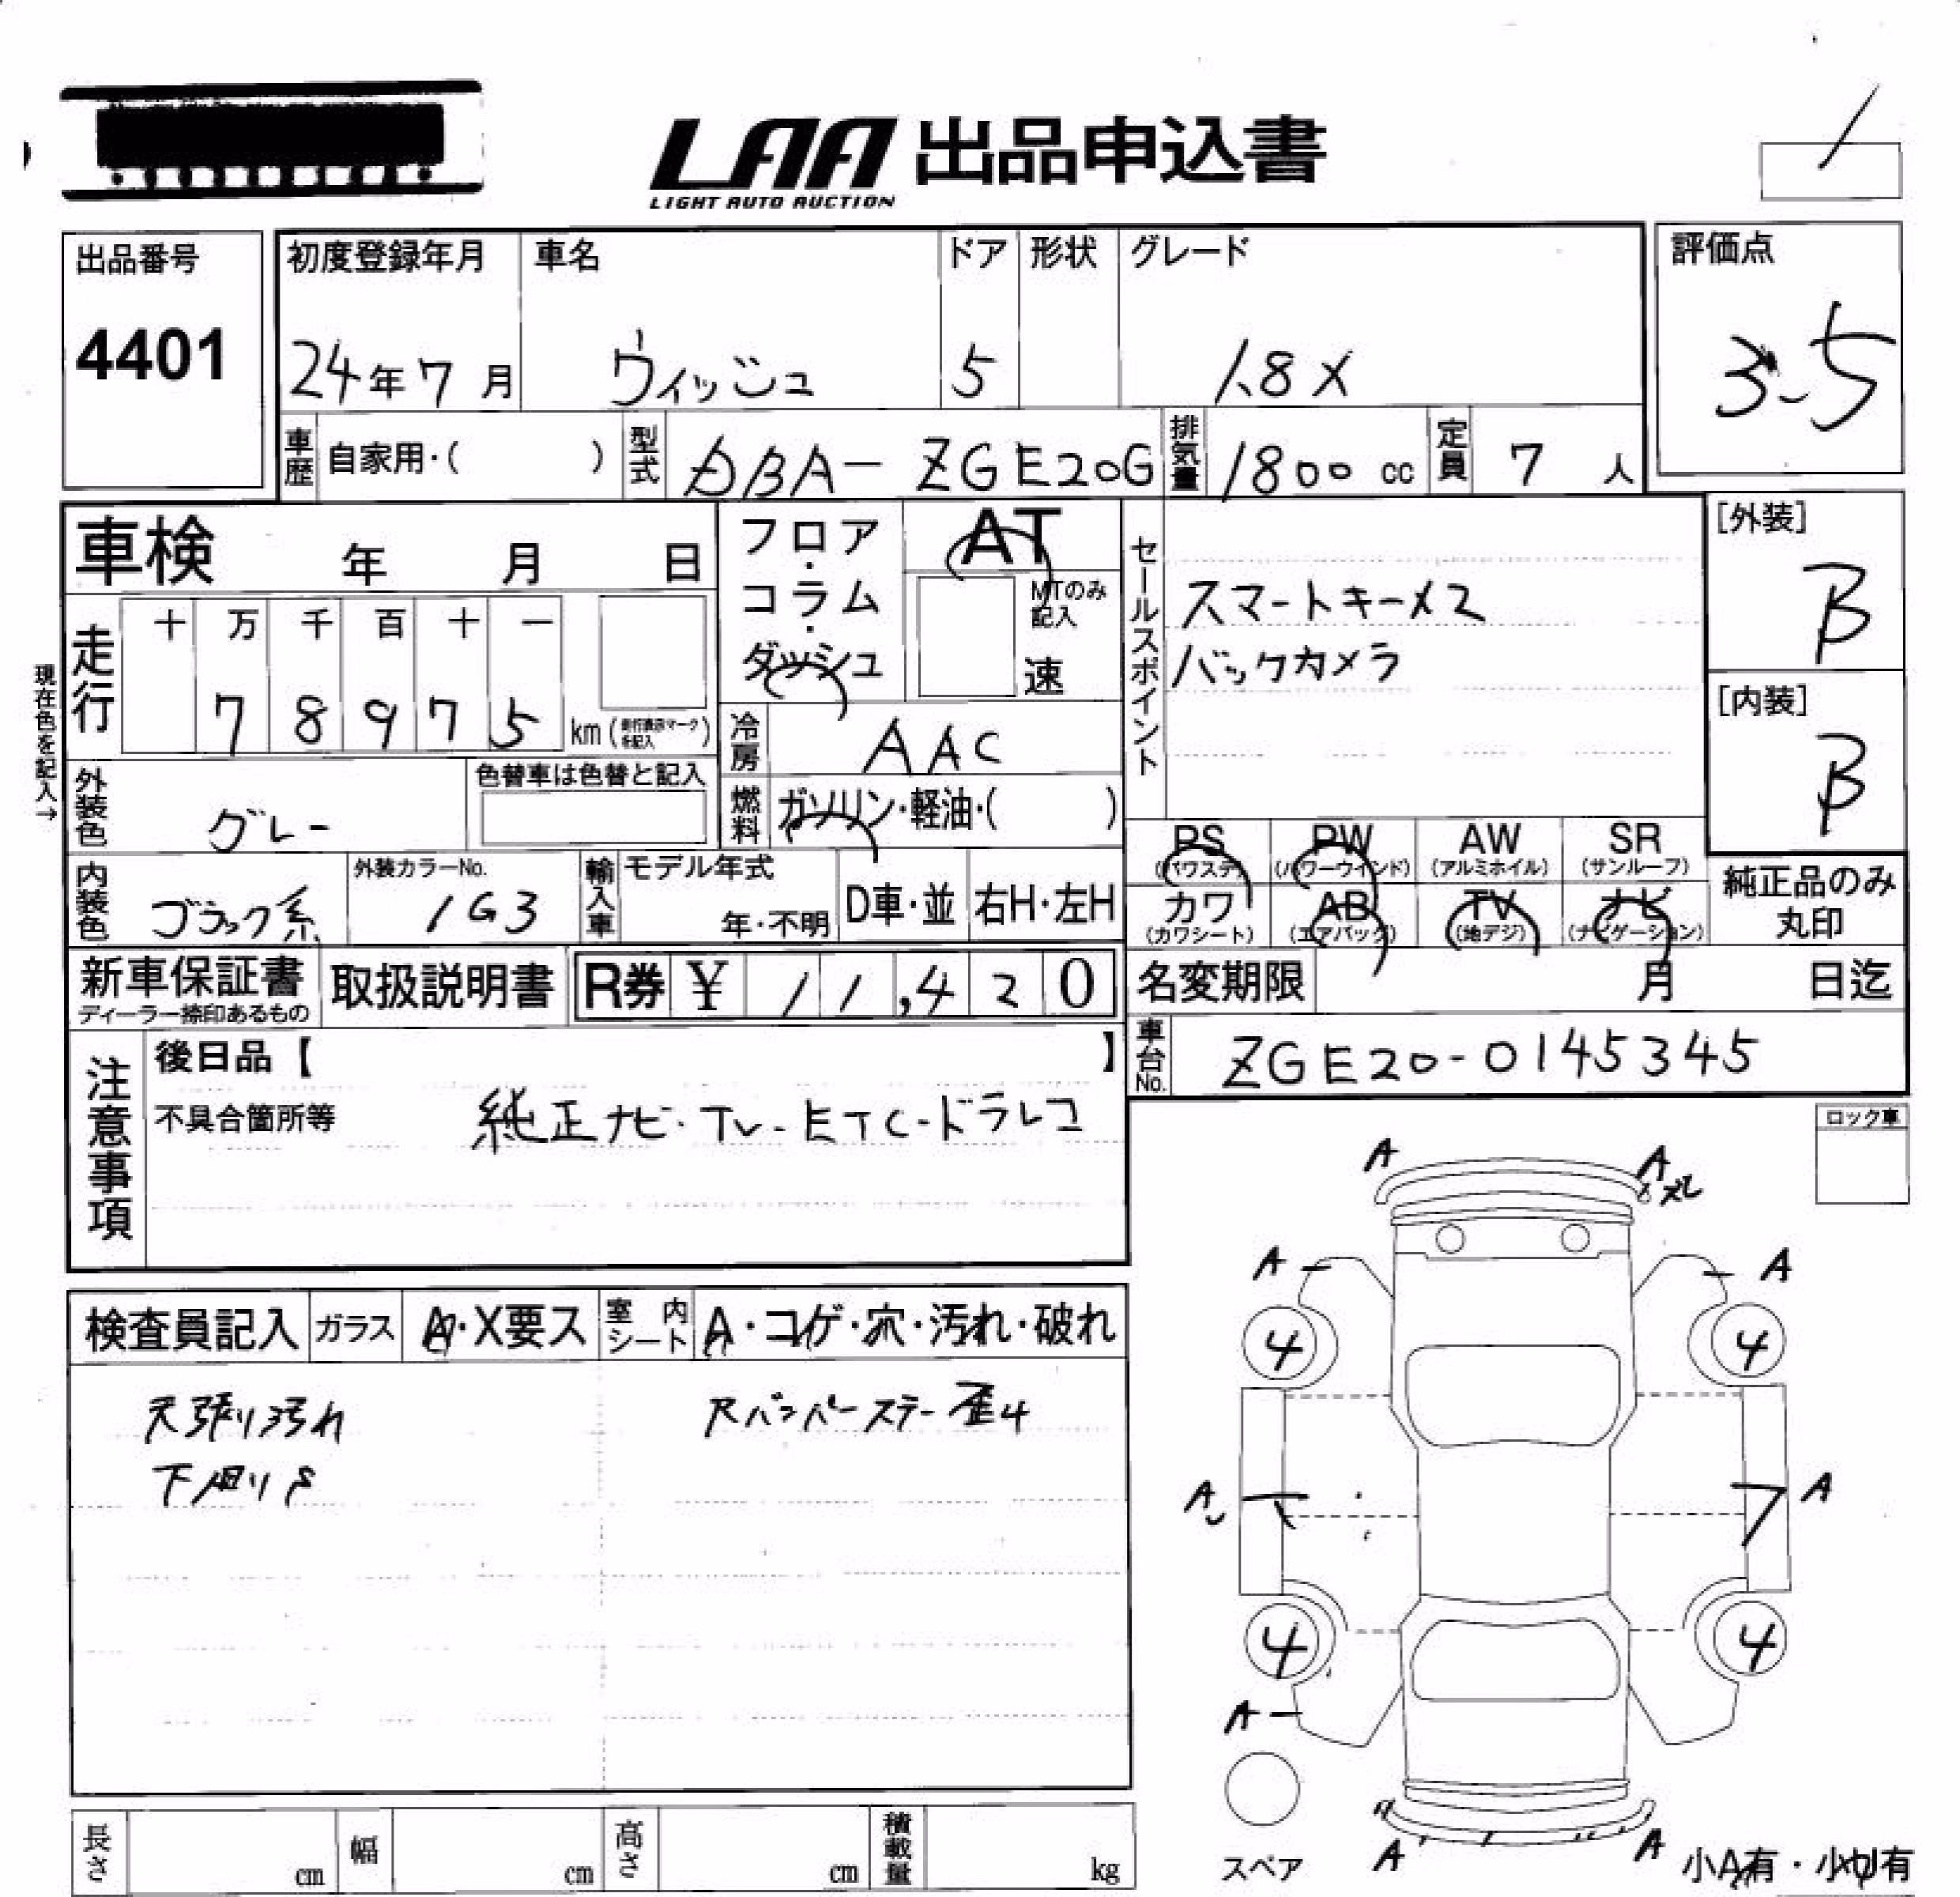 LAA 出品申込書
LIGHT AUTO AUCTION
出品番号
4401
初度登録年月
24年7月
車名
ウィッシュ
ドア
5
形状
グレード
1.8X
評価点
3.5
車歴
自家用・( )
型式
DBA- ZGE20G
排気量
1800 cc
定員
7 人
車検 年 月 日
フロア・コラム・ダッシュ
AT
MTのみ記入
速
セールスポイント
スマートキーメス
バックカメラ
[外装]
B
[内装]
B
現在色を記入→
走行
十 万 千 百 十 一
7 8 9 7 5
km (走行表示マークを記入)
冷房
AAC
外装色
グレー
色替車は色替と記入
燃料
ガソリン・軽油・( )
内装色
ブラック系
外装カラーNo.
1G3
輸入車
モデル年式
年・不明
D車・並
右H・左H
PS (パワステ)
PW (パワーウインド)
AW (アルミホイル)
SR (サンルーフ)
カワ (カワシート)
AB (エアバッグ)
TV (地デジ)
ナビ (ナビゲーション)
純正品のみ丸印
新車保証書
ディーラー捺印あるもの
取扱説明書
R券 ¥ 11,420
名変期限 月 日迄
車台No.
ZGE20-0145345
注意事項
後日品【 】
不具合箇所等
純正ナビ・TV-ETC-ドラレコ
ロック車
検査員記入
ガラス
A・X要ス
室内シート
A・コゲ・穴・汚れ・破れ
天張り汚れ
Rバンパーステー歪4
下廻りS
A A
A A
4 4
A A
4 4
A
スペア
A A
小A有・小U有
長さ cm
幅 cm
高さ cm
積載量 kg